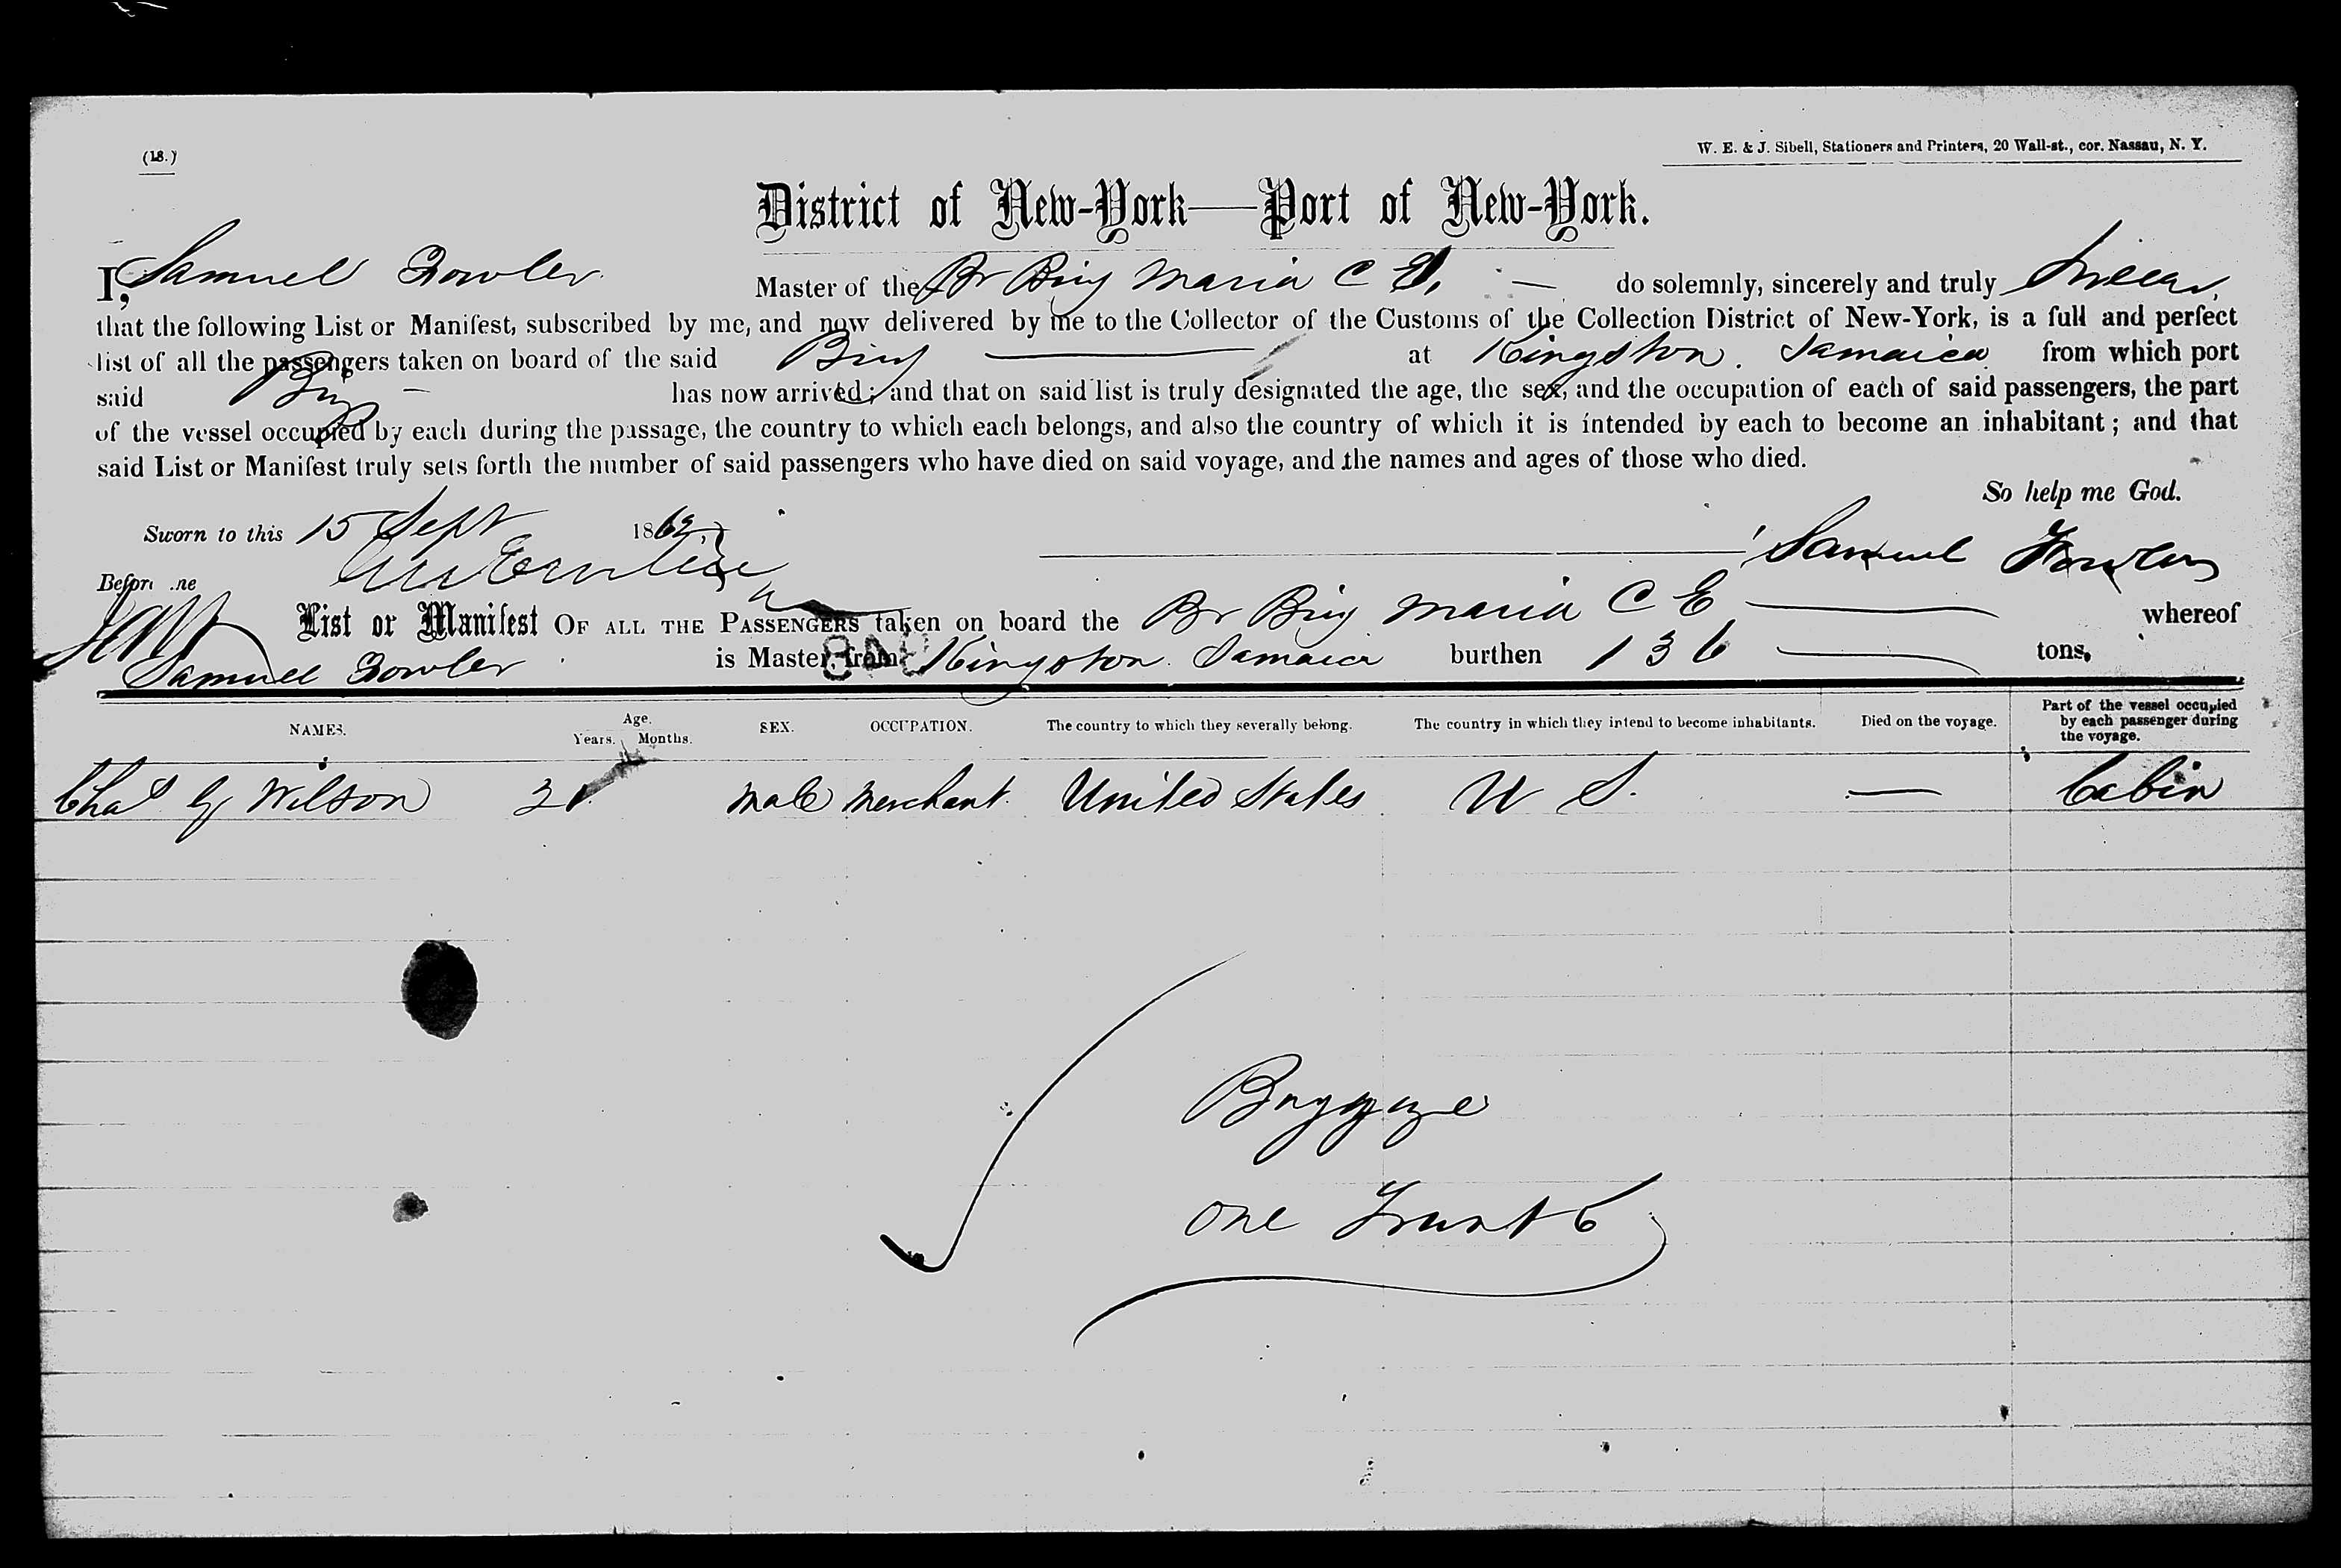 (18.)
W. E. & J. Sibell, Stationers and Printers, 20 Wall-st., cor. Nassau, N. Y.
District of New-York—Port of New-York.
I, Samuel Fowler Master of the Br Brig Maria C E, — do solemnly, sincerely and truly Swear,
that the following List or Manifest, subscribed by me, and now delivered by me to the Collector of the Customs of the Collection District of New-York, is a full and perfect
list of all the passengers taken on board of the said Brig — at Kingston. Jamaica from which port
said Brig — has now arrived; and that on said list is truly designated the age, the sex, and the occupation of each of said passengers, the part
of the vessel occupied by each during the passage, the country to which each belongs, and also the country of which it is intended by each to become an inhabitant; and that
said List or Manifest truly sets forth the number of said passengers who have died on said voyage, and the names and ages of those who died.
So help me God.
Sworn to this 15 Sept 1862
Samuel Fowler
Before me
List or Manifest OF ALL THE PASSENGERS taken on board the Br Brig Maria C E — whereof
Samuel Fowler is Master, from Kingston. Jamaica burthen 136 — tons,
NAMES. Age. Years. Months. SEX. OCCUPATION. The country to which they severally belong. The country in which they intend to become inhabitants. Died on the voyage. Part of the vessel occupied by each passenger during the voyage.
Chas G Wilson male merchant. United States U S. — Cabin
Baggage
one Trunk